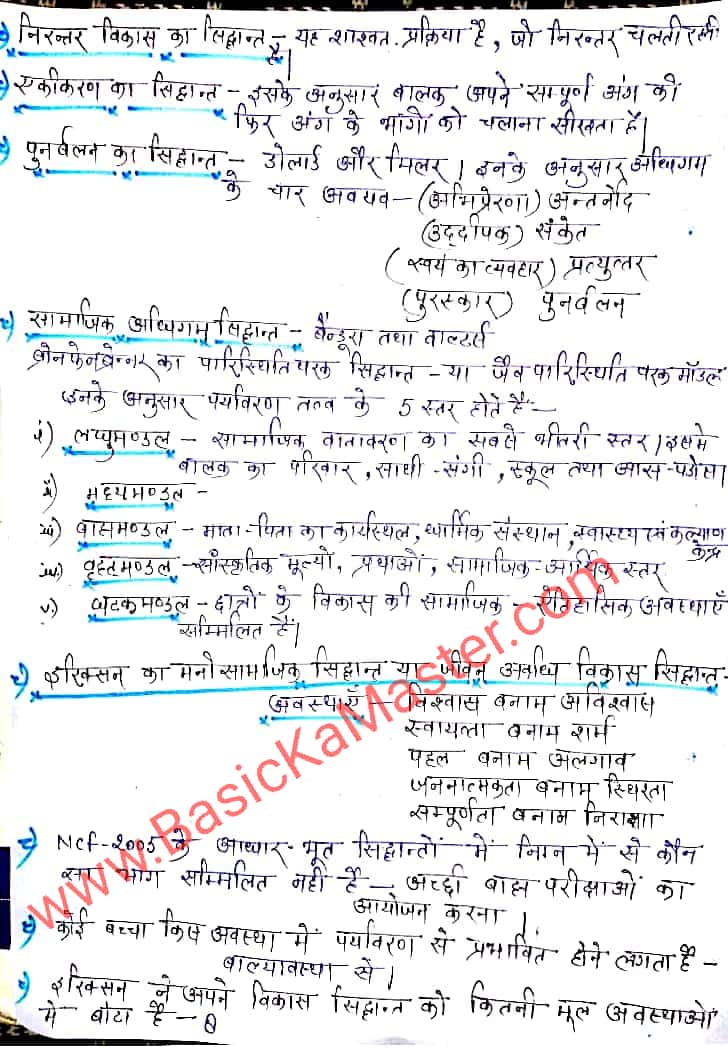 निरन्तर विकास का सिद्धान्त - यह शाश्वत प्रक्रिया है, जो निरन्तर चलती रहती
है।
एकीकरण का सिद्धान्त - इसके अनुसार बालक अपने सम्पूर्ण अंग को
फिर अंग के भागों को चलाना सीखता है।
पुनर्बलन का सिद्धान्त - डोलार्ड और मिलर। इनके अनुसार अधिगम
के चार अवयव - (अभिप्रेरणा) अन्तर्नोद
(उद्दीपक) संकेत
(स्वयं का व्यवहार) प्रत्युत्तर
(पुरस्कार) पुनर्वलन
सामाजिक अधिगम सिद्धान्त - बैन्डूरा तथा वाल्टर्स
ब्रोनफेनब्रेन्नर का पारिस्थितिपरक सिद्धान्त - या जैव पारिस्थिति परक मॉडल
इनके अनुसार पर्यावरण तत्व के 5 स्तर होते हैं -
i) लघुमण्डल - सामाजिक वातावरण का सबसे भीतरी स्तर। इसमे
बालक का परिवार, साथी-संगी, स्कूल तथा आस-पड़ोस।
ii) मध्यमण्डल -
iii) बाह्यमण्डल - माता-पिता का कार्यस्थल, धार्मिक संस्थान, स्वास्थ्य एवं कल्याण
केन्द्र
iv) वृहतमण्डल - सांस्कृतिक मूल्यों, प्रथाओं, सामाजिक-आर्थिक स्तर
v) घटकमण्डल - छात्रों के विकास की सामाजिक - ऐतिहासिक अवस्थाएँ
सम्मिलित हैं।
इरिक्सन का मनोसामाजिक सिद्धान्त या जीवन अवधि विकास सिद्धान्त -
अवस्थाएँ - विश्वास बनाम अविश्वास
स्वायत्ता बनाम शर्म
पहल बनाम अलगाव
जननात्मकता बनाम स्थिरता
सम्पूर्णता बनाम निराशा
Ncf-2005 के आधार-भूत सिद्धान्तों में निम्न में से कौन
सा भाग सम्मिलित नहीं है - अच्छी बाह्य परीक्षाओं का
आयोजन करना।
कोई बच्चा किस अवस्था में पर्यावरण से प्रभावित होने लगता है -
बाल्यावस्था से।
इरिक्सन ने अपने विकास सिद्धान्त को कितनी मूल अवस्थाओं
मे बाँटा है - 8
www.BasicKaMaster.com